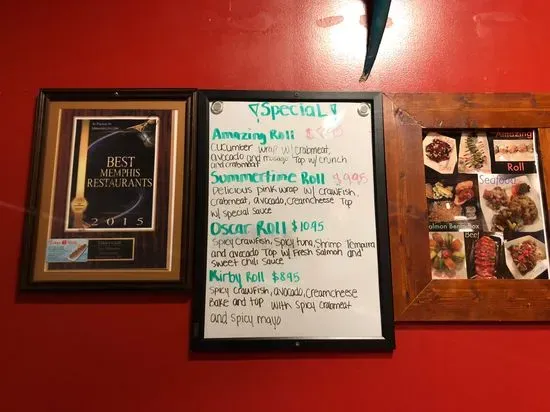 BEST
MEMPHIS
RESTAURANTS
2015
Special
Amazing Roll
cucumber wrap w/ crabmeat,
avocado and mango Top w/ crunch
and crabmeat
Summertime Roll $9.95
Delicious pink wrap w/ crawfish,
crabmeat, avocado, creamcheese Top
w/ special sauce
Oscar Roll $10.95
Spicy crawfish, spicy tuna, shrimp Tempura
and avocado Top w/ Fresh salmon and
sweet chili sauce
Kirby Roll $8.95
Spicy crawfish, avocado, creamcheese
Bake and top with spicy crabmeat
and spicy mayo
Amazing
Roll
Seafood
Salmon Bento Box
Beef